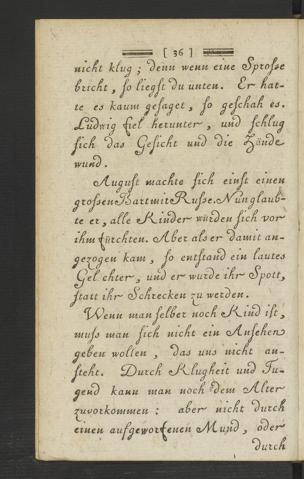 [ 36 ]
nicht klug; denn wenn eine Sprosse
bricht, so liegst du unten. Er hat-
te es kaum gesaget, so geschah es.
Ludwig fiel herunter, und schlug
sich das Gesicht und die Hände
wund.
August machte sich einst einen
grossen Bart mit Russe. Nun glaub-
te er, alle Kinder würden sich vor
ihm fürchten. Aber als er damit an-
gezogen kam, so entstand ein lautes
Gelächter, und er wurde ihr Spott,
statt ihr Schrecken zu werden.
Wenn man selber noch Kind ist,
muss man sich nicht ein Ansehen
geben wollen, das uns nicht an-
steht. Durch Klugheit und Tu-
gend kann man noch dem Alter
zuvorkommen: aber nicht durch
einen aufgeworfenen Mund, oder
durch